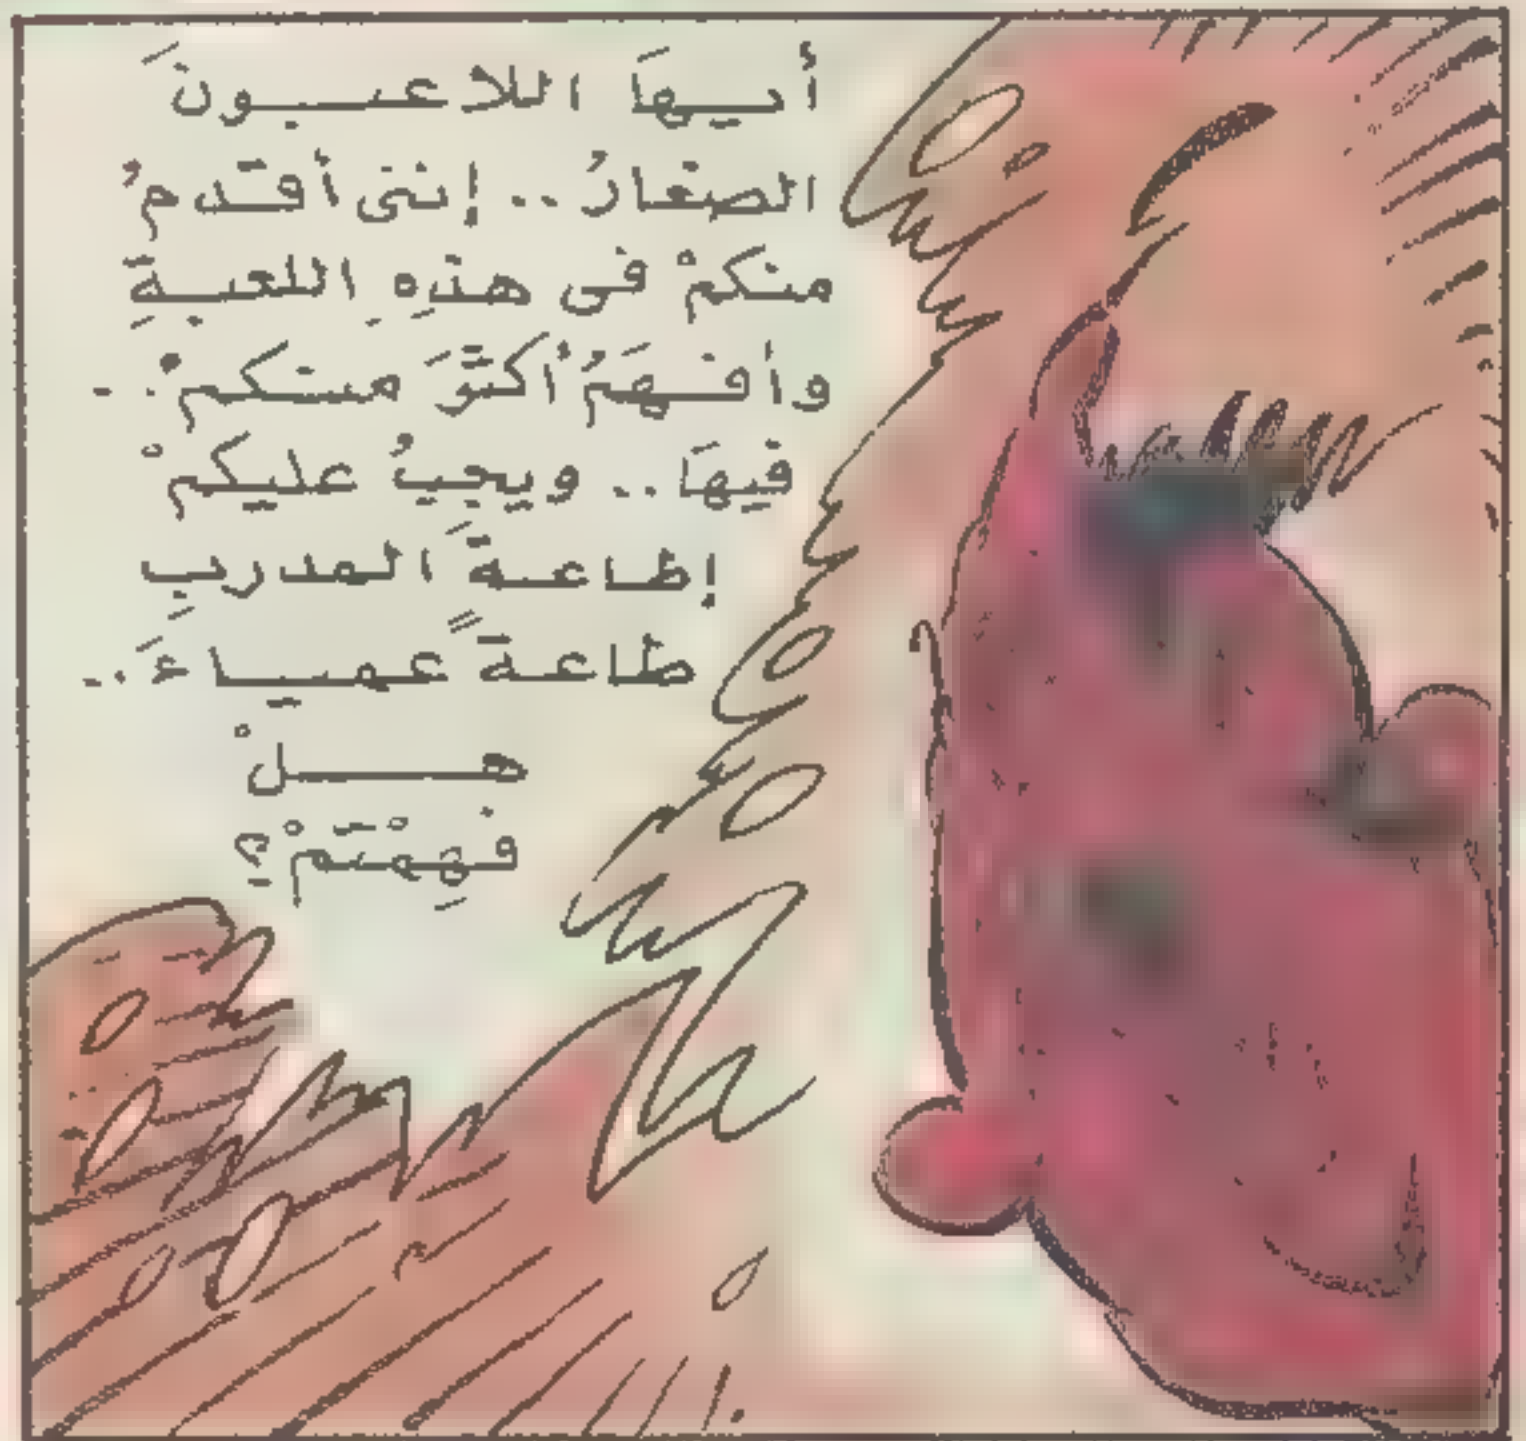 أيها اللاعبون
الصغارُ .. إننى أقدمُ
منكمْ فى هذِهِ اللعبةِ
وأفهَمُ أكثَرَ منكمْ ..
فيهَا .. ويجبُ عليكمْ
إطاعةَ المدربِ
طاعةً عمياءَ ..
هلْ
فهِمْتمْ؟